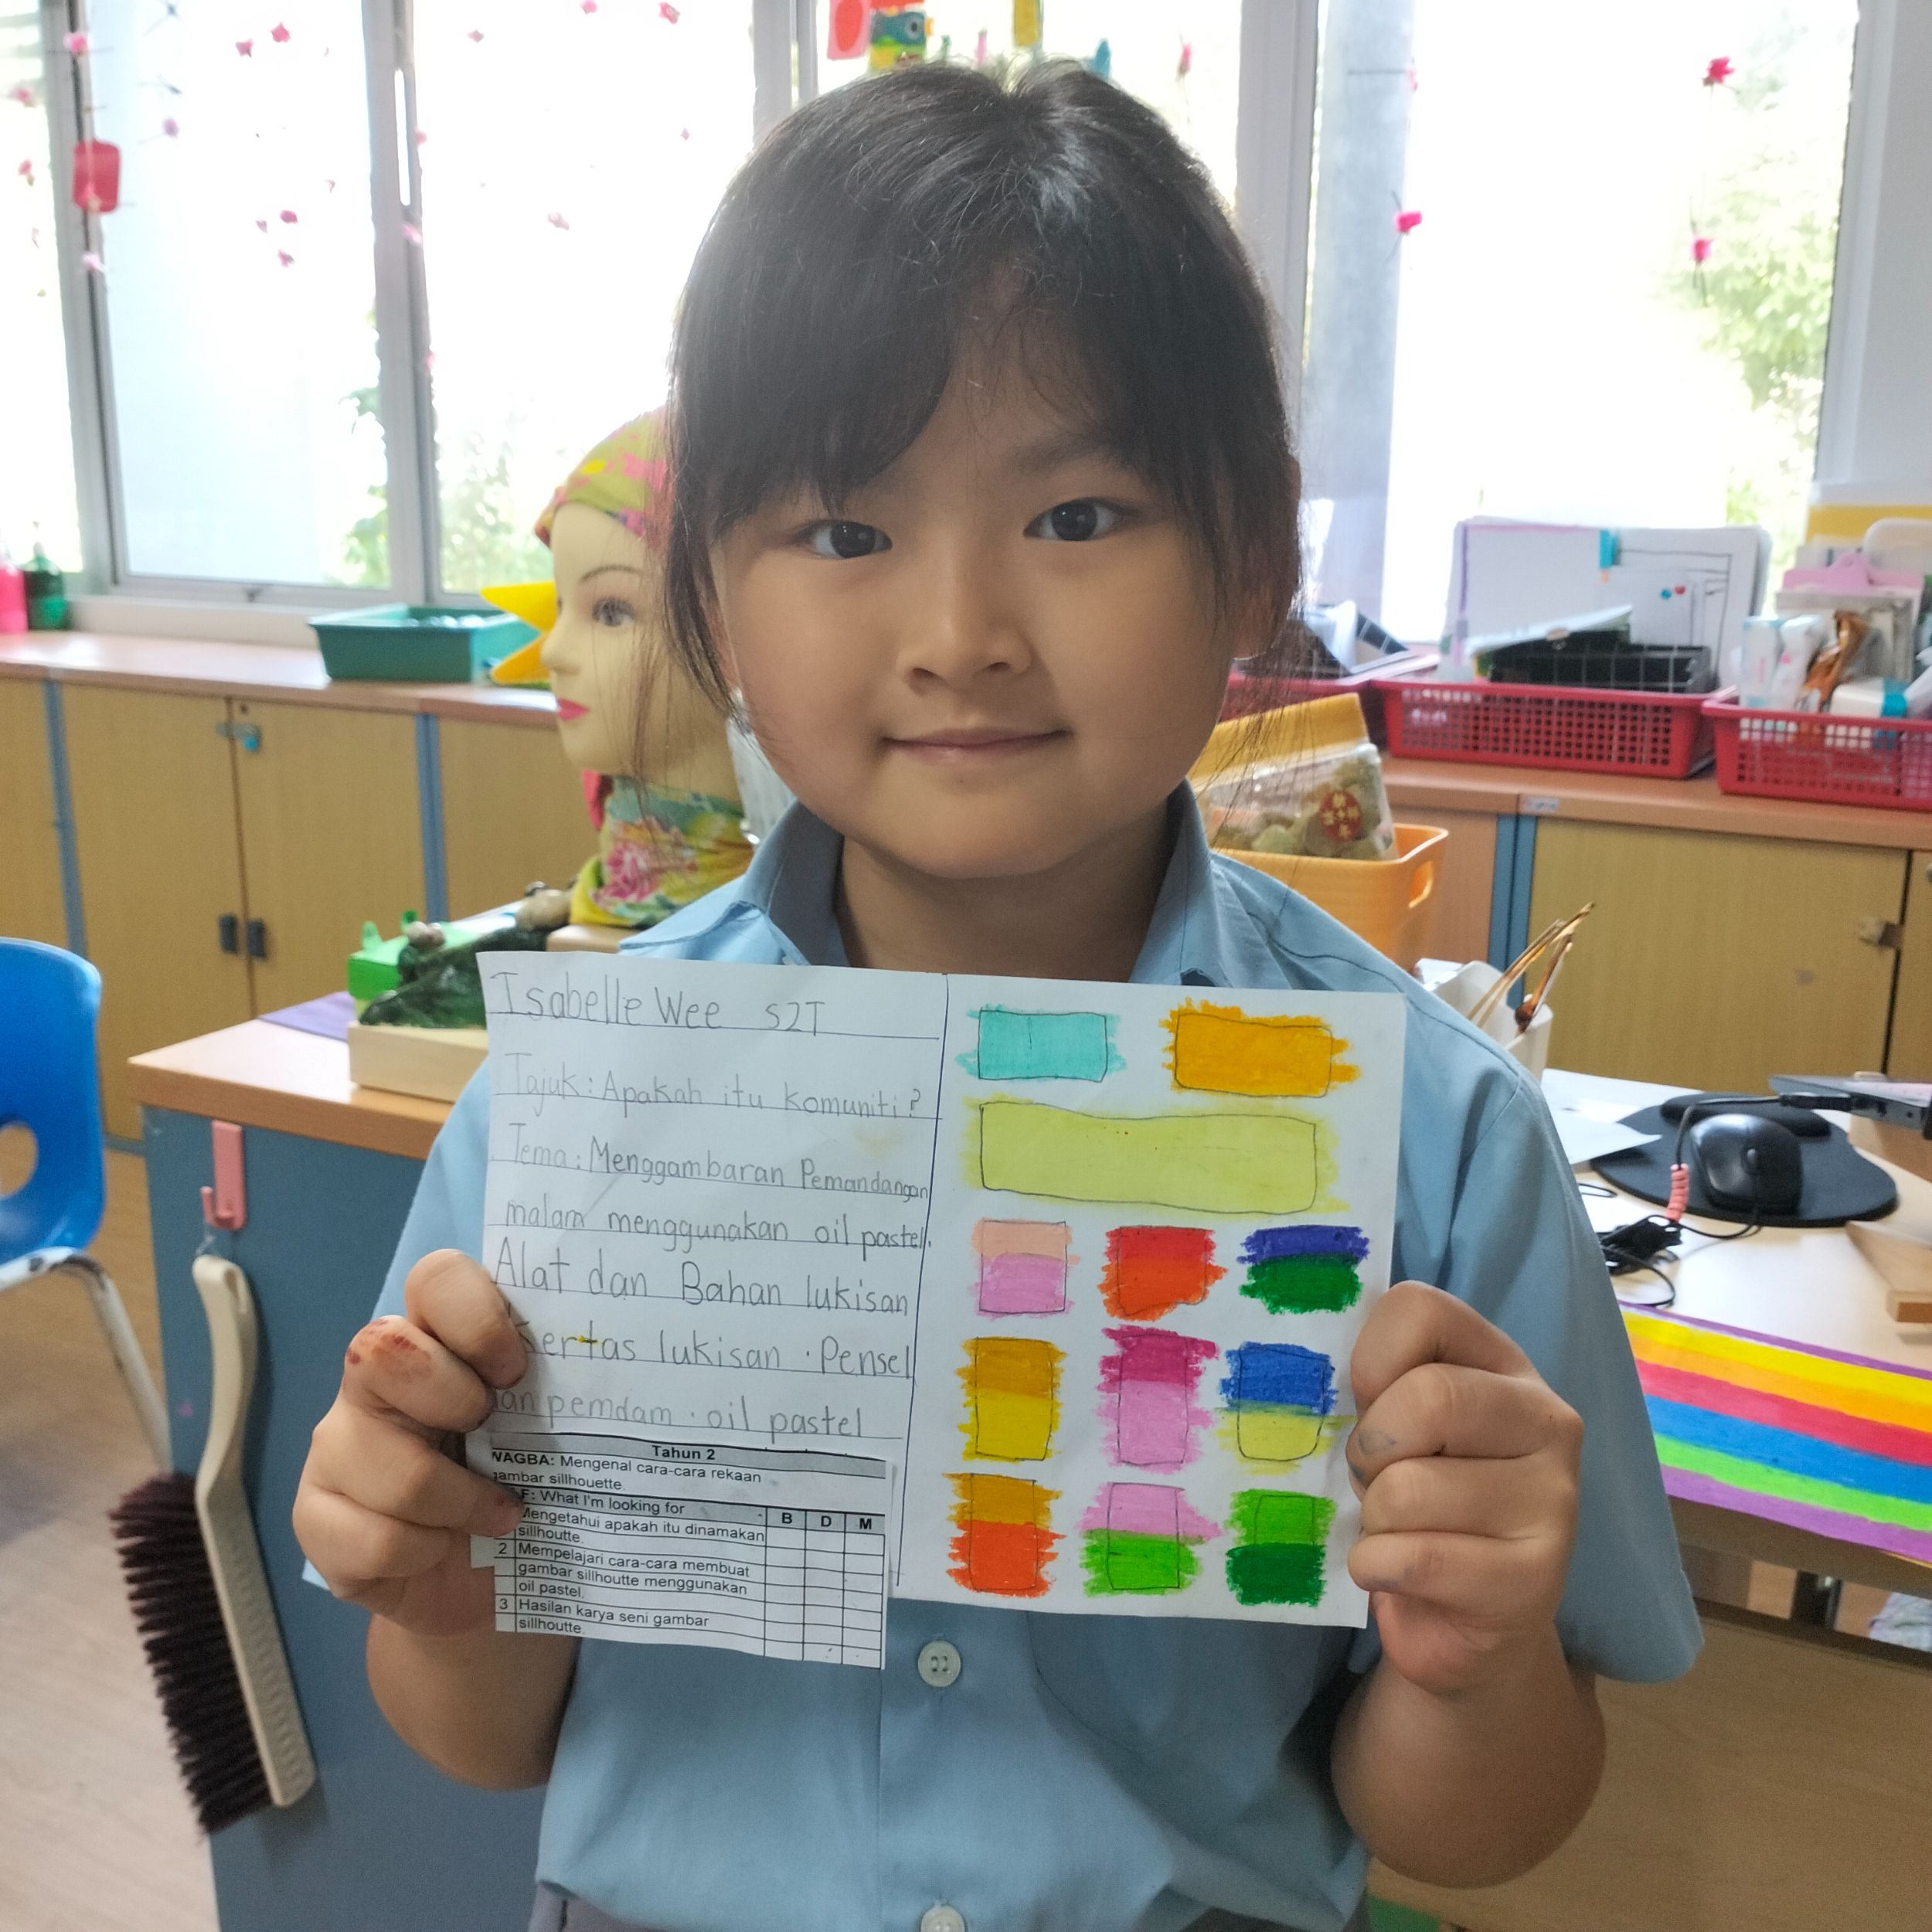 Isabelle Wee S2T
Tajuk: Apakah itu komuniti?
Tema: Menggambaran Pemandangan
malam menggunakan oil pastel.
Alat dan Bahan lukisan
Kertas lukisan · Pensel
dan pemdam · oil pastel
Tahun 2
WAGBA: Mengenal cara-cara rekaan
gambar sillhouette.
F: What I'm looking for B D M
Mengetahui apakah itu dinamakan
sillhoutte.
2 Mempelajari cara-cara membuat
gambar sillhoutte menggunakan
oil pastel.
3 Hasilan karya seni gambar
sillhoutte.